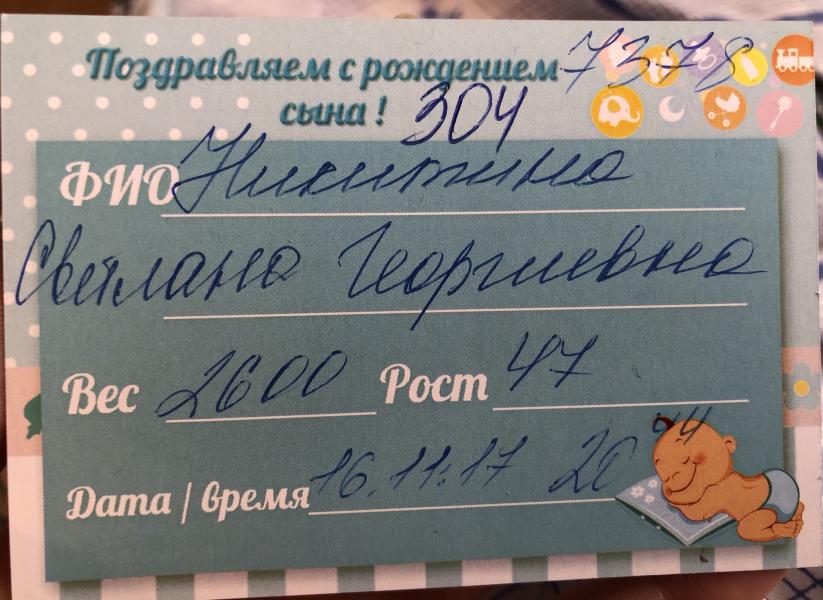 Поздравляем с рождением 7378
сына! 304
ФИО Никитина
Светлана Георгиевна
Вес 2600 Рост 47
Дата / время 16.11.17 20 44